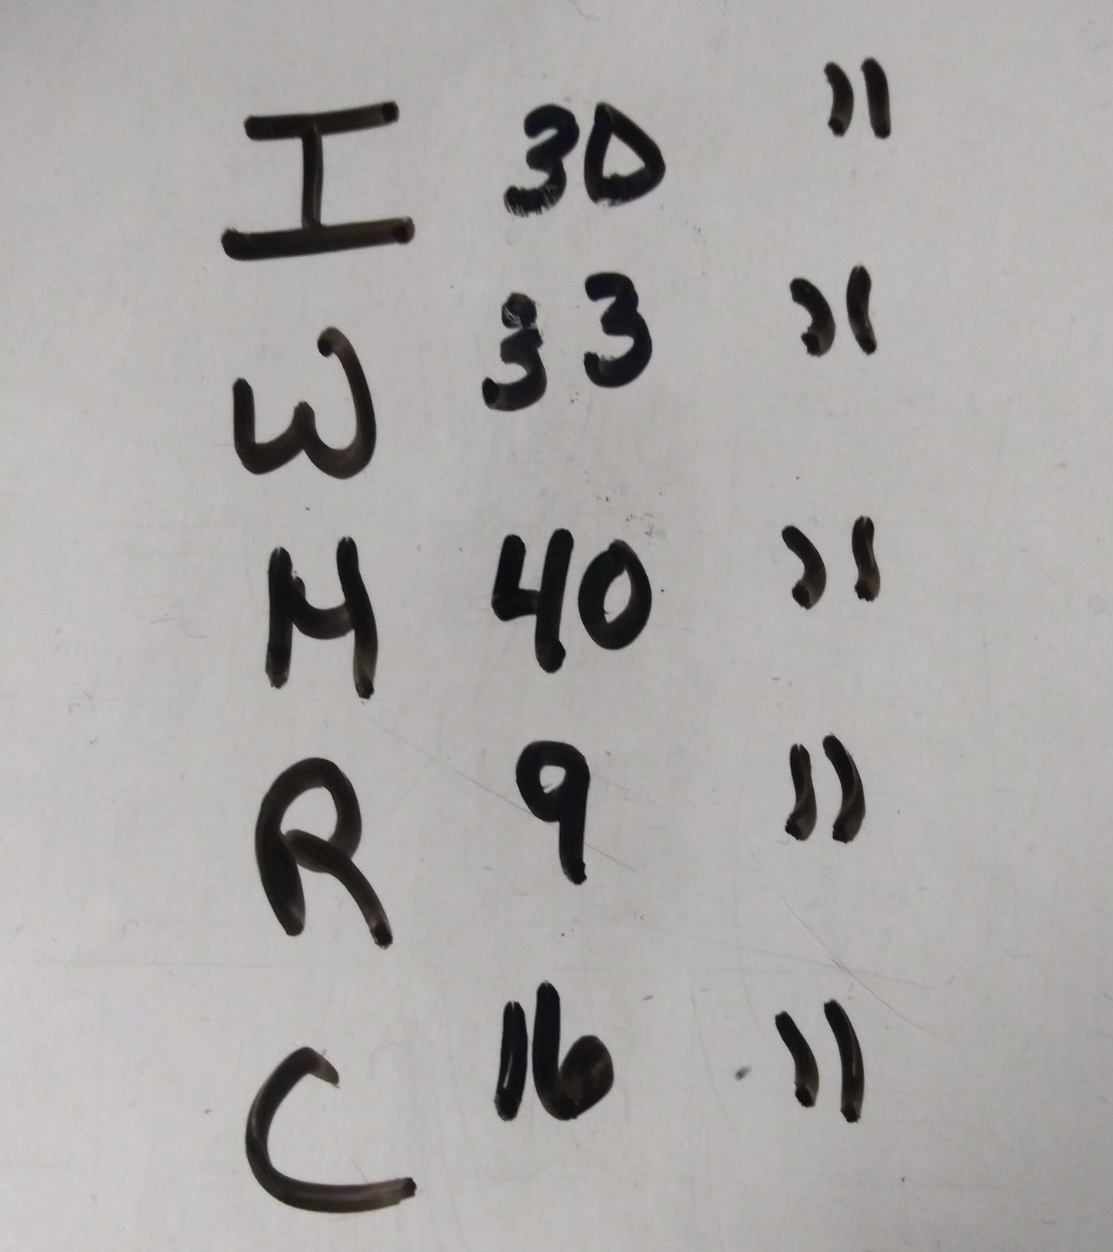 I 30 "
W 33 "
H 40 "
R 9 "
C 16 "